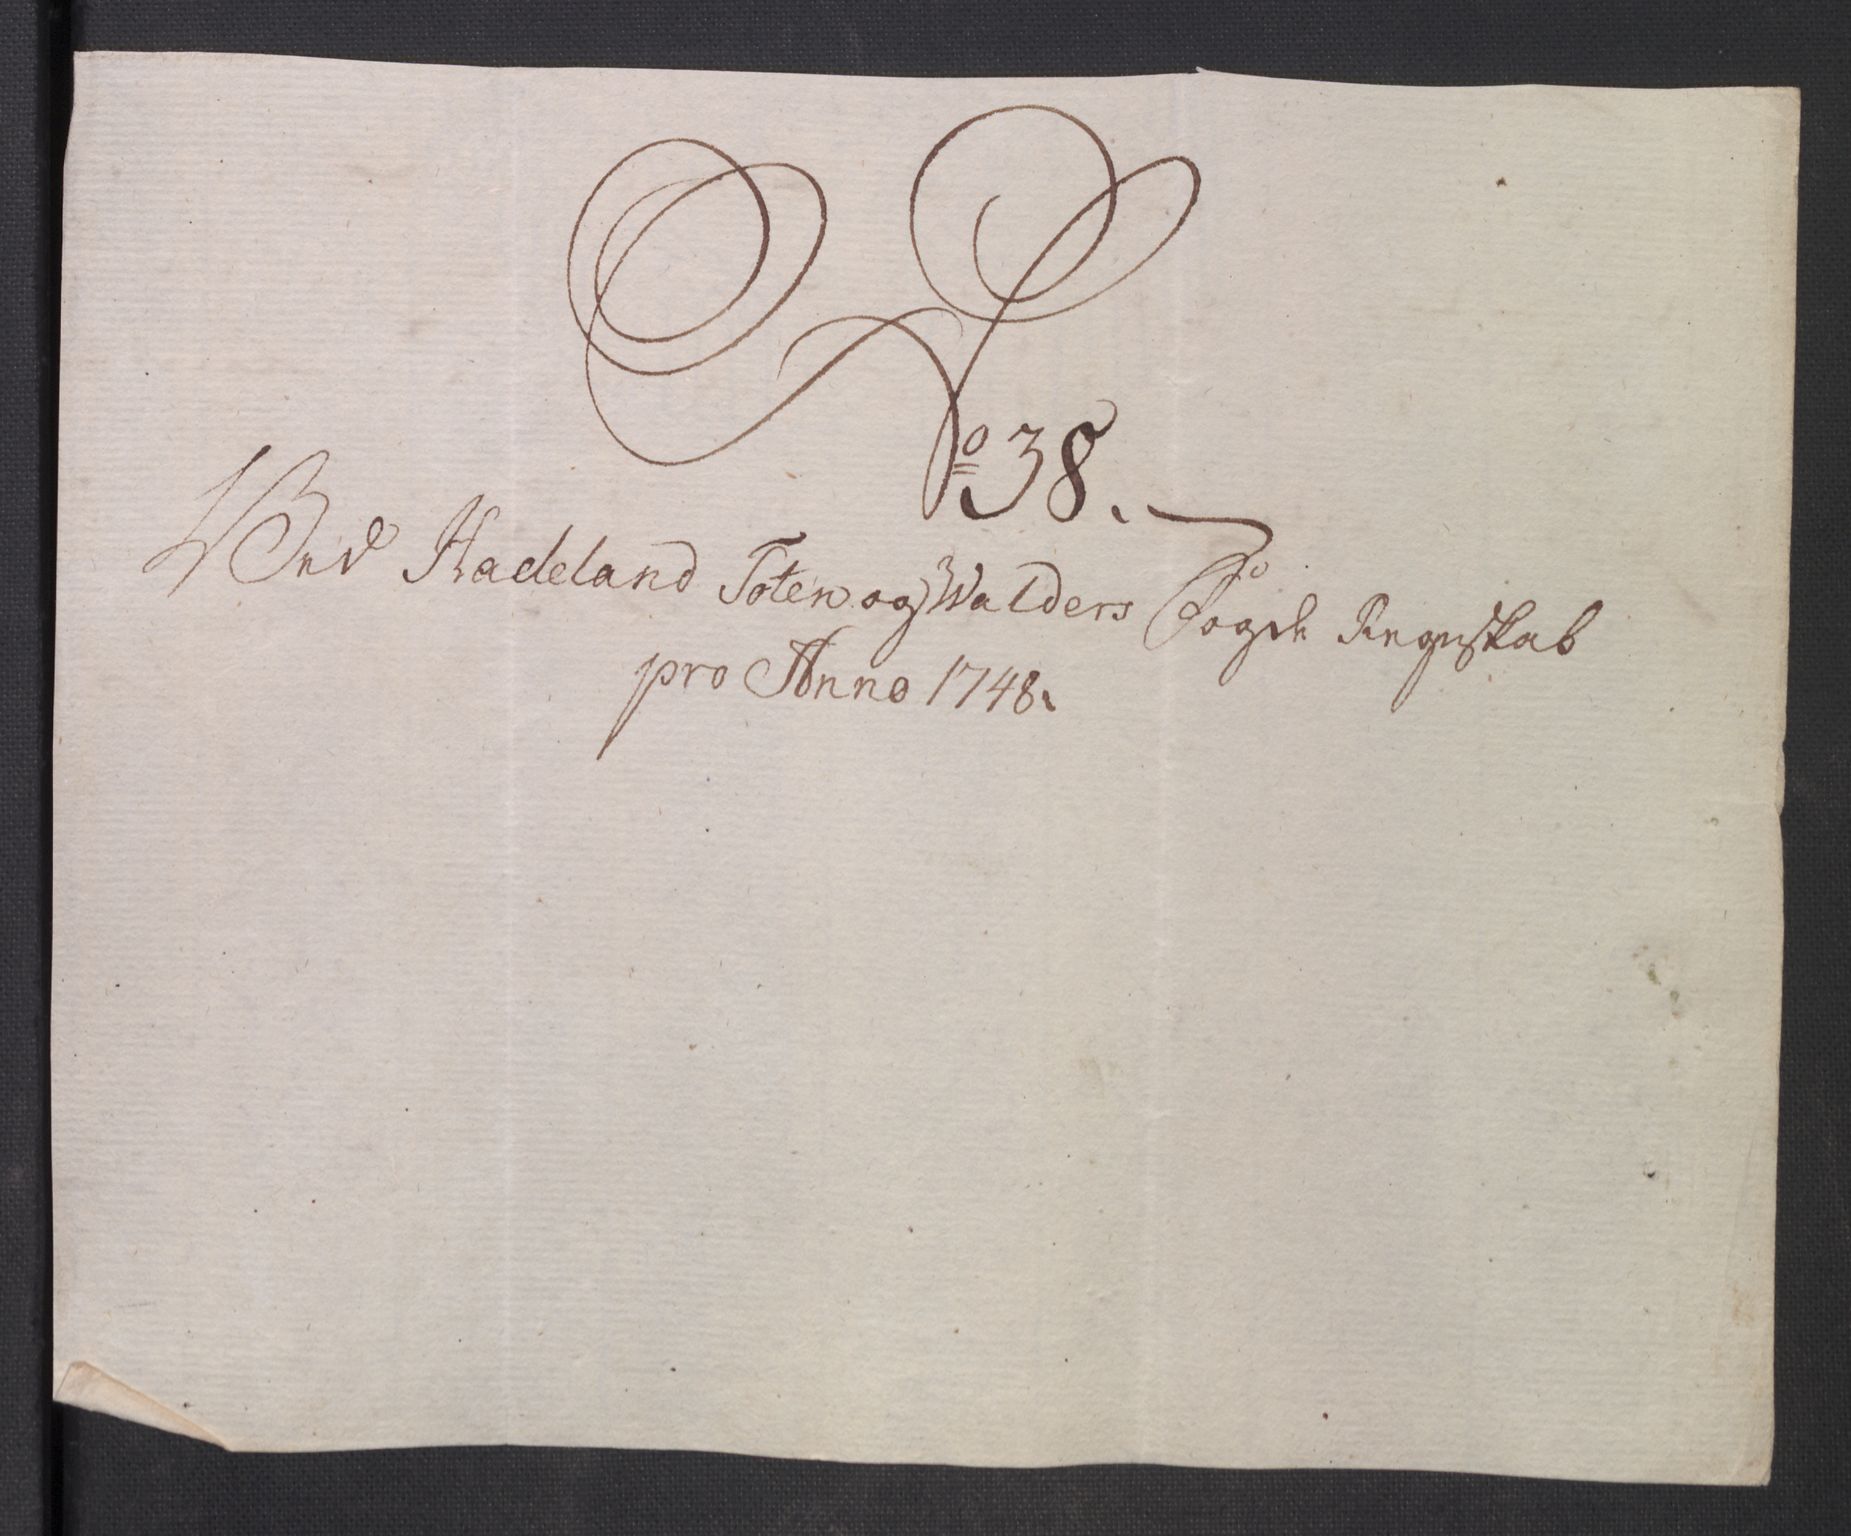 No 38.
Ved Hadeland Toten og Walders Fogde Regnskab
pro Anno 1748.